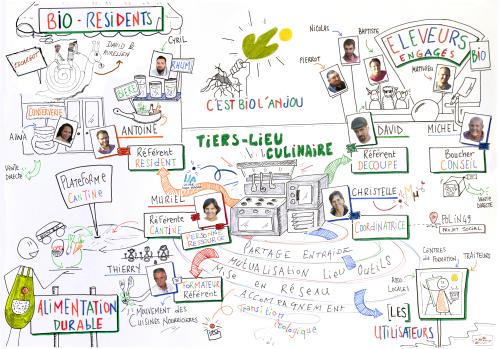 BiO - RESIDENTS
ESCARGOT
DAVID & AURELIEN
CYRIL
RHUM
BIÈRE
CONSERVERIE
AIWA
ANTOINE
Référent
RESIDENT
VENTE
DIRECTE
PLATEFORME
CANTINE
MURIEL
Référente
CANTINE
PERSONNE
RESSOURCE
THIERRY
FORMATEUR
Référent
ALIMENTATION
DURABLE
MOUVEMENT DES
CUISINES NOURRICIÈRES
C'EST BIO L'ANJOU
TIERS-LIEU
CULINAIRE
PARTAGE ENTRAIDE
MUTUALISATION LIEU OUTILS
MISE en RÉSEAU
ACCOMPAGNEMENT
transition
écologique
NICOLAS
PIERROT
BAPTISTE
MATTHIEU
ELEVEURS
ENGAGÉS
BIO
DAVID
Référent
DECOUPE
MICHEL
Boucher
CONSEIL
VENTE
DIRECTE
CHRISTELLE
COORDINATRICE
POLIN49
PROJET SOCIAL
CENTRES
de FORMATION,
TRAITEURS
ASSO
LOCALES
[LES]
UTILISATEURS